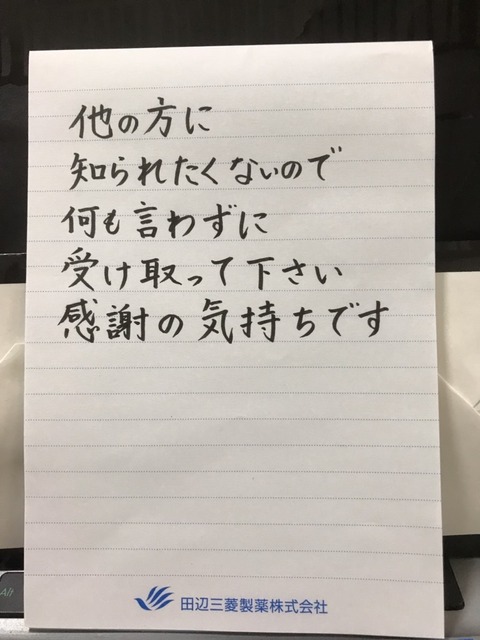 他の方に
知られたくないので
何も言わずに
受け取って下さい
感謝の気持ちです
田辺三菱製薬株式会社
Alt